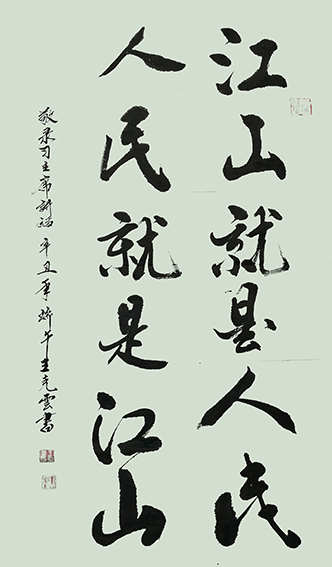 江山就是人民
人民就是江山
敬录习主席讲话辛丑年端午王克雲書